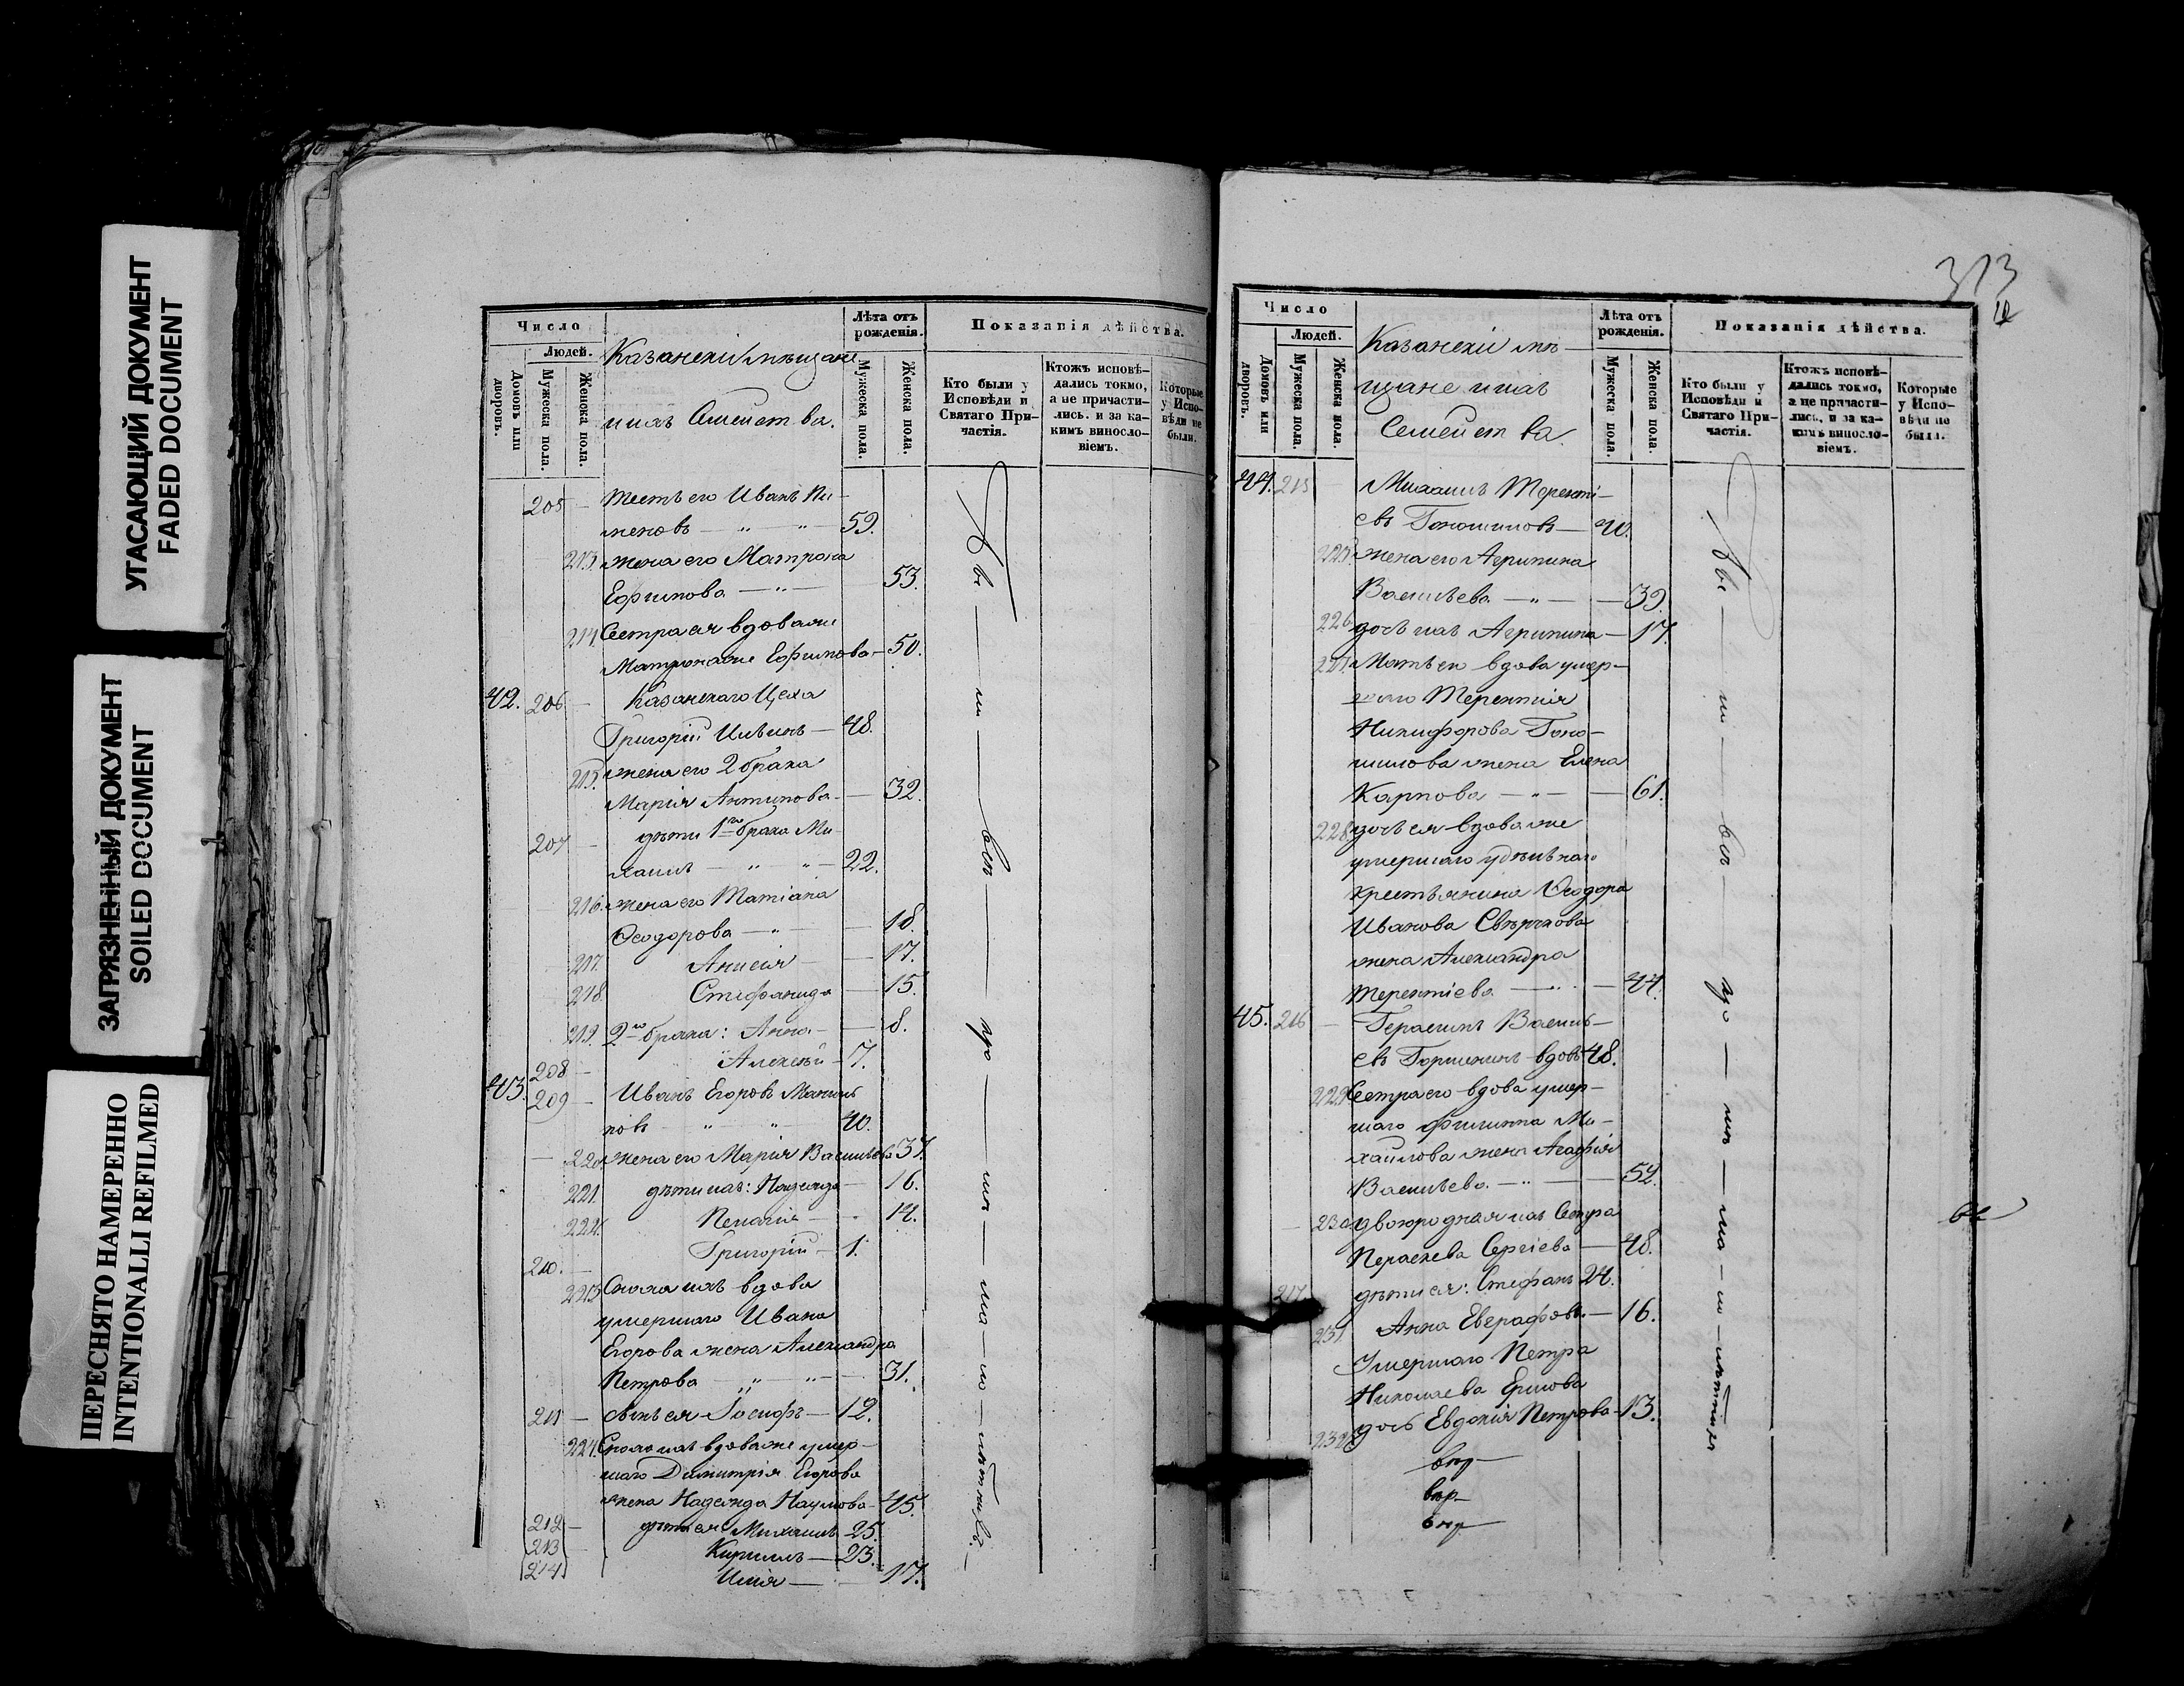 УГАСАЮЩИЙ ДОКУМЕНТ
FADED DOCUMENT
ЗАГРЯЗНЕННЫЙ ДОКУМЕНТ
SOILED DOCUMENT
ПЕРЕСНЯТО НАМЕРЕННО
INTENTIONALLI REFILMED
Число
Людей.
Домовъ или дворовъ.
Мужеска пола.
Женска пола.
Казанскіи мѣщане
и ихъ Семейства.
Лѣта отъ рожденія.
Мужеска пола.
Женска пола.
Показанія дѣйства.
Кто были у Исповѣди и Святаго Причастія.
Ктожъ исповѣдались токмо, а не причастились. и за какимъ винословіемъ.
Которые у Исповѣди не были.
205 — Тесть его Иванъ Пи-
меновъ — 59.
213. жена его Матрона
Ефимова — 53.
214. Сестра ея вдова же
Матрона же Ефимова — 50.
42. 206 — Казанскаго Цеха
Григорій Ильинъ — 48.
215. жена его 2 брака
Марія Антипова — 32.
207 — дѣти 1го брака Ми-
хаилъ — 22.
216. жена его Татіана
Ѳеодорова — 18.
217. Анисія — 17.
218. Стефанида — 15.
219. 2го брака: Анна — 8.
208 — Алексѣй — 7.
43. 209 — Иванъ Егоровъ
новъ — 40.
220. жена его Марія Васильева 37.
221. дѣти ихъ: Надежда — 16.
222. Пелагія — 14.
210. — Григорій — 1.
223. Сноха ихъ вдова
умершаго Ивана
Егорова жена Александра
Петрова — 31.
211 — сынъ ея Іосифъ — 12.
224. Сноха ихъ вдова же умер-
шаго Димитрія Егорова
жена Надежда Наумова — 45.
212 — дѣти ея Михаилъ 25.
213 — Кириллъ — 23.
214 Илія — 17.
313
Число
Людей.
Домовъ или дворовъ.
Мужеска пола.
Женска пола.
Казанскіи мѣ-
щане и ихъ
Семейства.
Лѣта отъ рожденія.
Мужеска пола.
Женска пола
Показанія дѣйства.
Кто были у Исповѣди и Святаго Причастія.
Ктожъ исповѣдались токмо, а не причастились, и за какимъ винословіемъ.
Которые у Исповѣди не были.
44. 215 — Михаилъ Теренті-
евъ — 40.
225. жена его Агрипина
Васильева — 39.
226. дочь ихъ Агрипина — 17.
227. Мать его вдова умер-
шаго Терентія
Никифорова
жена Елена
Карпова — 61.
228. дочь ея вдова же
умершаго удѣльнаго
крестьянина Ѳеодора
Иванова
жена Александра
Терентіева — 44.
45. 216 — Герасимъ Василь-
евъ вдовъ 48.
229. Сестра его вдова умер-
шаго Филиппа Ми-
хайлова жена Агафія
Васильева — 52.
230. двоюродная ихъ Сестра
Параскева Сергіева — 48.
217. дѣти ея: Стефанъ 24.
231. Анна Евграфова — 16.
Умершаго Петра
Николаева Ершова
232. дочь Евдокія Петрова — 13.